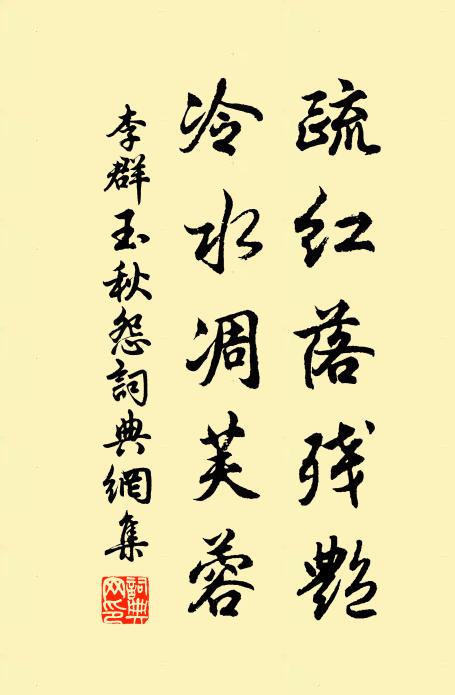 疏红落残艳
冷水凋芙蓉
李群玉秋怨詞典網集
詞典网印